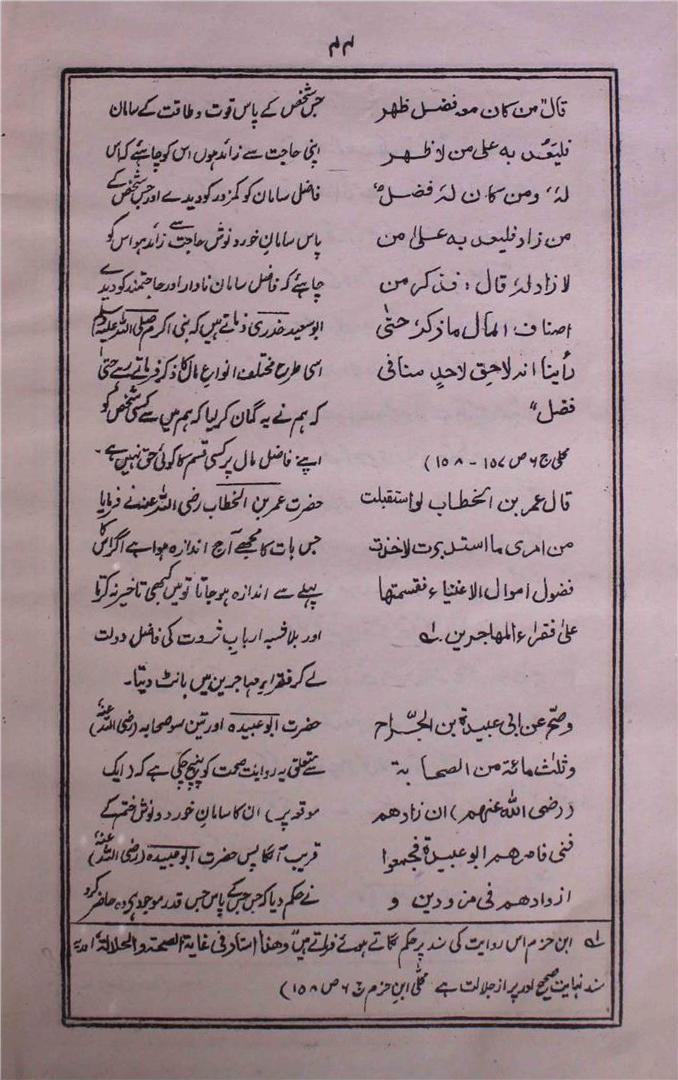 ۴۴
قال "من كان معه فضل ظهر
فليعد به على من لا ظهر
له، ومن كان له فضل
من زاد فليعد به على من
لا زاد له قال: فذكر من
اصناف المال ما ذكر حتى
رأينا انه لا حق لاحدٍ منا فی
فضل"
محلی ج ۶ ص ۱۵۷ - ۱۵۸)
قال عمر بن الخطاب لو استقبلت
من امری ما استدبرت لاخذت
فضول اموال الاغنياء فقسمتها
علیٰ فقراء المهاجرين ۔ لہ
وصح عن ابی عبيدة بن الجرّاح
وثلث مائة من الصحابة
(رضی الله عنهم) ان زادهم
فنی فامرهم ابو عبيدة فجمعوا
ازوادهم فی مزودين و
جس شخص کے پاس قوت و طاقت کے سامان
اپنی حاجت سے زائد ہوں اس کو چاہئے کہ اس
فاضل سامان کو کمزور کو دیدے اور جس شخص کے
پاس سامانِ خورد و نوش حاجت سے زائد ہو اس کو
چاہئے کہ فاضل سامان نادار اور حاجتمند کو دیدے
ابو سعید خدری فرماتے ہیں کہ نبی اکرم صلی اللہ علیہ وسلم
اسی طرح مختلف انواعِ مال کا ذکر فرماتے رہے حتیٰ
کہ ہم نے یہ گمان کر لیا کہ ہم میں سے کسی شخص کو
اپنے فاضل مال پر کسی قسم کا کوئی حق نہیں ہے۔
حضرت عمر بن الخطاب رضی اللہ عنہ نے فرمایا
جس بات کا مجھے آج اندازہ ہوا ہے اگر اس کا
پہلے سے اندازہ ہو جاتا تو میں کبھی تاخیر نہ کرتا
اور بلا شبہ اربابِ ثروت کی فاضل دولت
لے کر فقراءِ مہاجرین میں بانٹ دیتا۔
حضرت ابو عبیدہ اور تین سو صحابہ (رضی اللہ عنہ)
سے متعلق یہ روایت صحت کو پہنچ چکی ہے کہ (ایک
موقعہ پر) ان کا سامانِ خورد و نوش ختم کے
قریب آ لگا پس حضرت ابو عبیدہ (رضی اللہ عنہ)
نے حکم دیا کہ جس جس کے پاس جس قدر موجود ہے وہ حاضر کرو
لہ ابن حزم اس روایت کی سند پر حکم لگاتے ہوئے فرماتے ہیں "وھذا اسناد فی غایة الصحة والجلالة" اور یہ
سند نہایت صحیح اور پر از جلالت ہے محلی ابن حزم ج ۶ ص ۱۵۸)